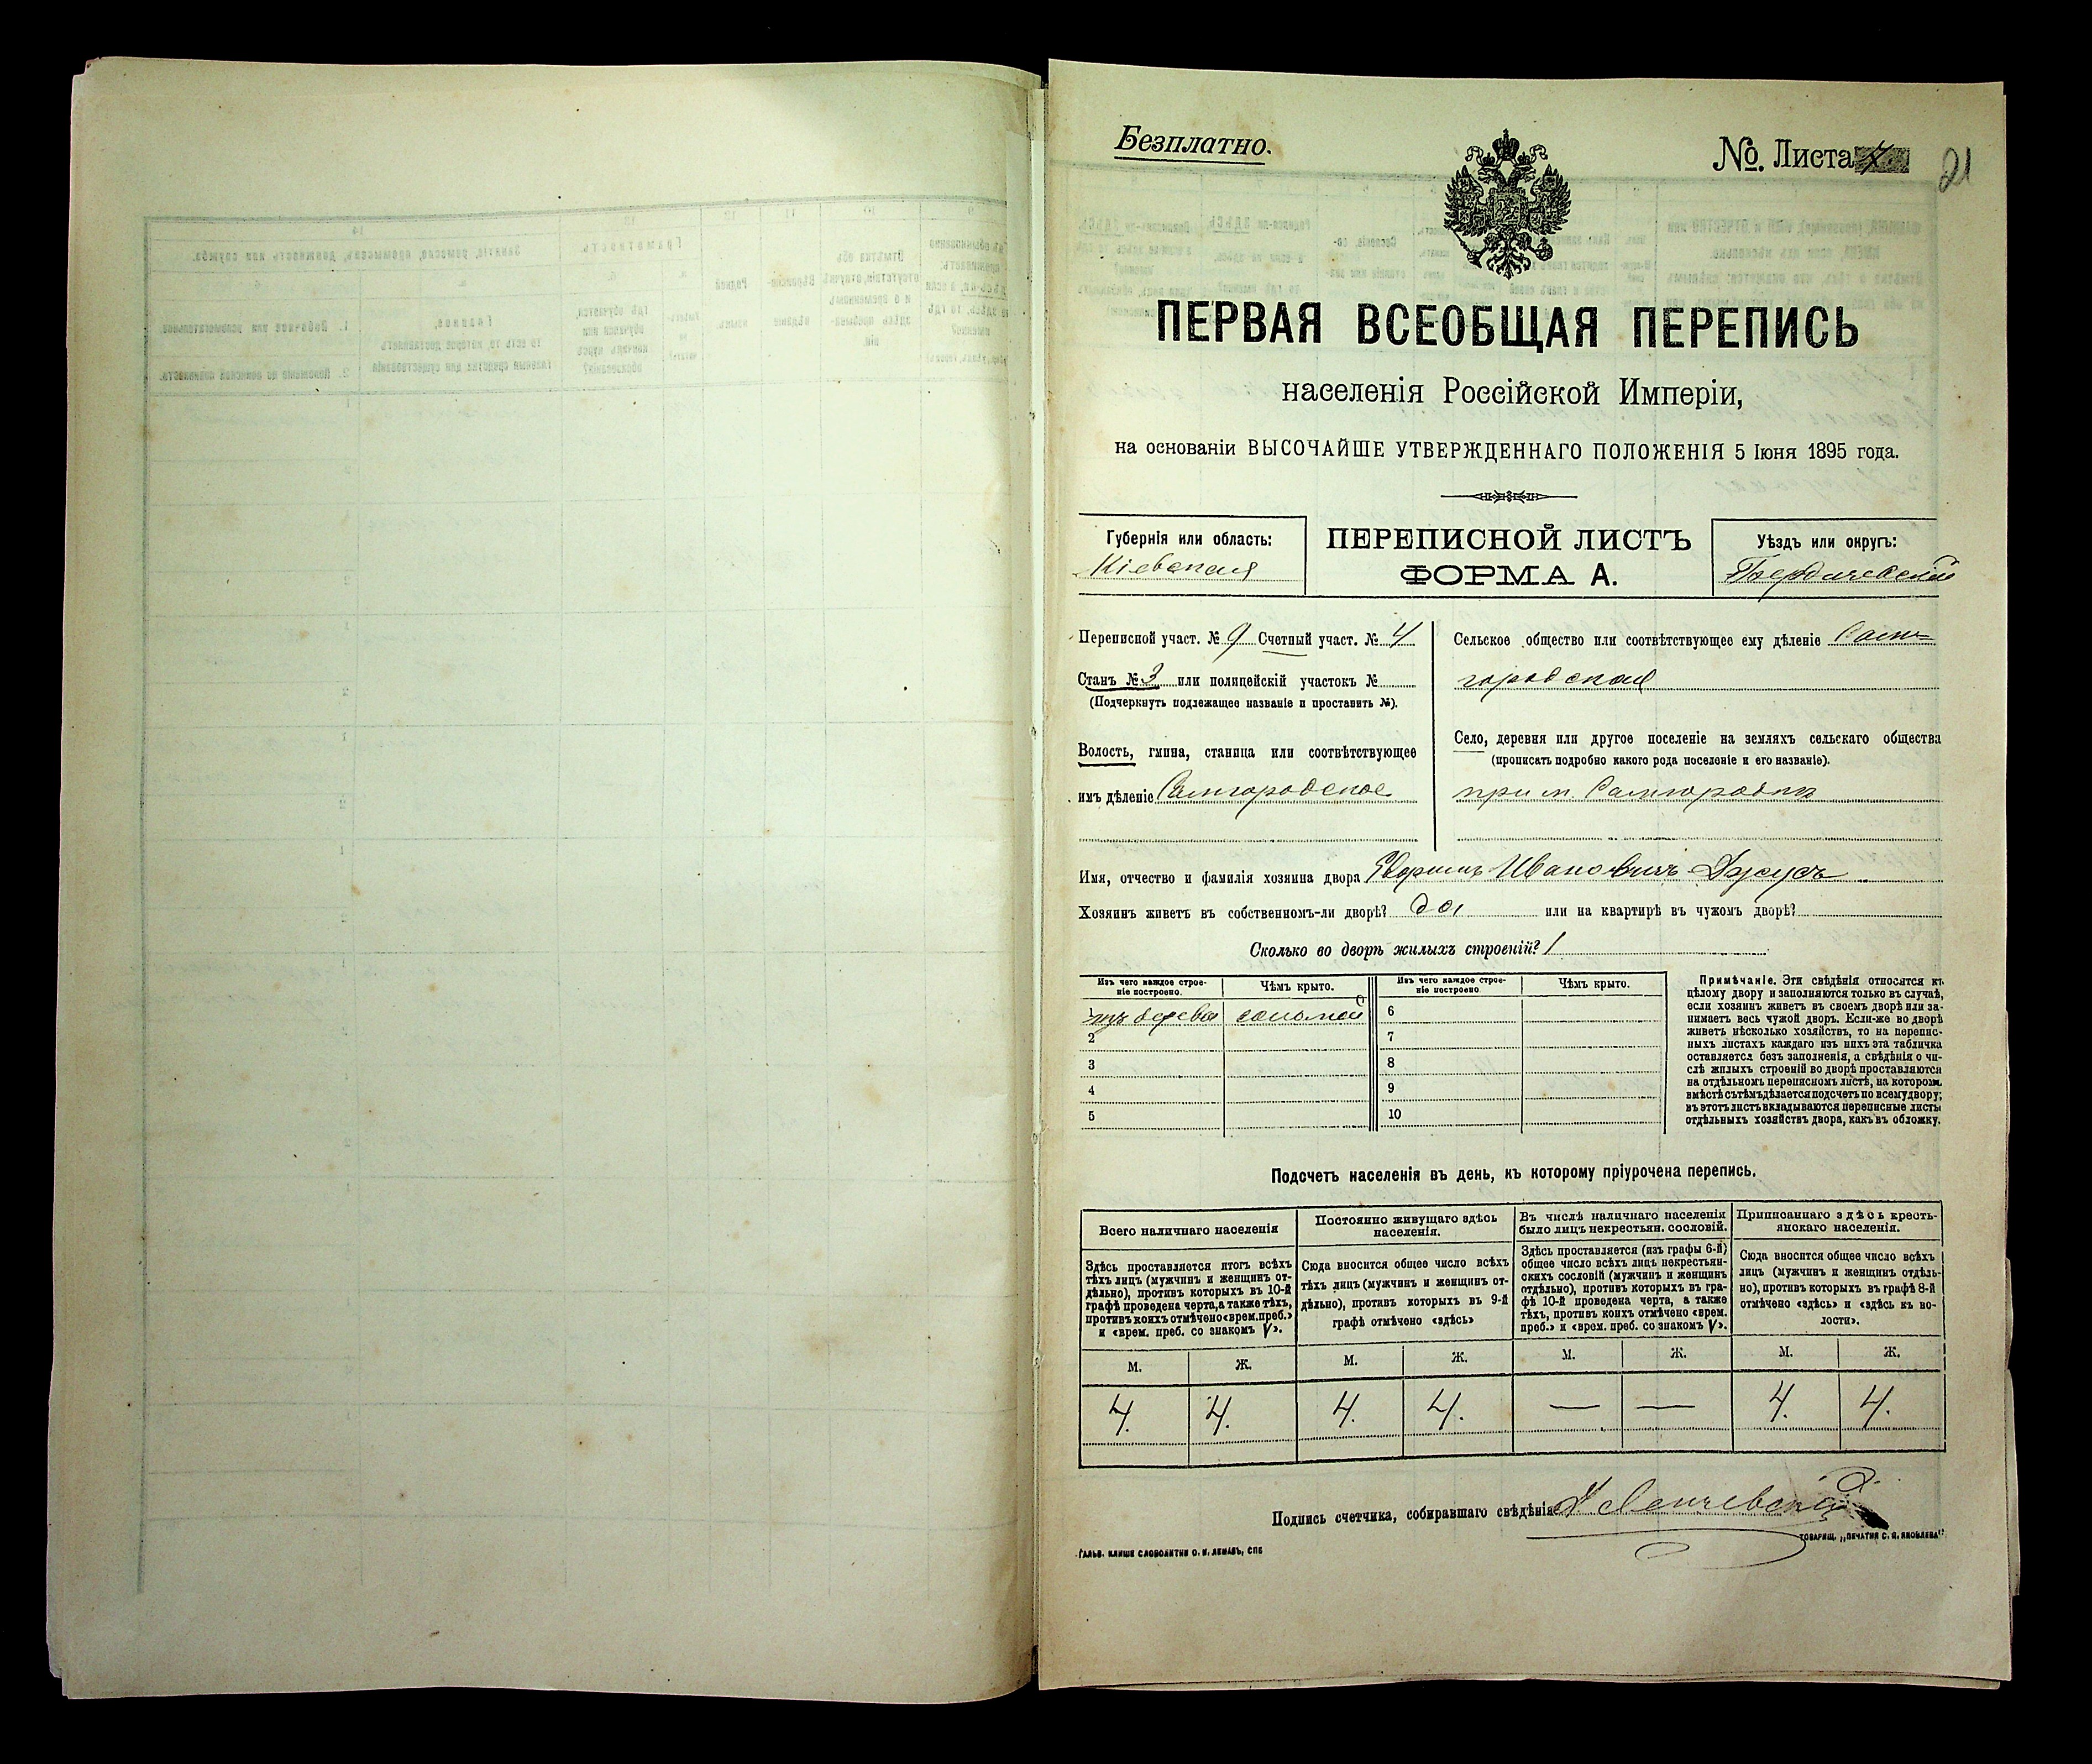 Безплатно.
№. Листа 7
21
ПЕРВАЯ ВСЕОБЩАЯ ПЕРЕПИСЬ
населенія Россійской Имперіи,
на основаніи ВЫСОЧАЙШЕ УТВЕРЖДЕННАГО ПОЛОЖЕНІЯ 5 Іюня 1895 года.
Губернія или область:
Кіевская
ПЕРЕПИСНОЙ ЛИСТЪ
ФОРМА А.
Уѣздъ или округъ:
Бердичевскій
Переписной участ. № 9 Счетный участ. № 4
Станъ № 3 или полицейскій участокъ №
(Подчеркнуть подлежащее названіе и проставить №).
Волость, гмина, станица или соотвѣтствующее
имъ дѣленіе Самгородское
Сельское общество или соотвѣтствующее ему дѣленіе Сам=
городская
Село, деревня или другое поселеніе на земляхъ сельскаго общества
(прописать подробно какого рода поселеніе и его названіе).
при м. Самгородкѣ
Имя, отчество и фамилія хозяина двора Ивановичъ
Хозяинъ живетъ въ собственномъ-ли дворѣ? да или на квартирѣ въ чужомъ дворѣ?
Сколько во дворѣ жилыхъ строеній? 1
Изъ чего каждое строе-
ніе построено.
Чѣмъ крыто.
Изъ чего каждое строе-
ніе построено
Чѣмъ крыто.
1 изъ дерева соломой
2
3
4
5
6
7
8
9
10
Примѣчаніе. Эти свѣдѣнія относятся къ
цѣлому двору и заполняются только въ случаѣ,
если хозяинъ живетъ въ своемъ дворѣ или за-
нимаетъ весь чужой дворъ. Если-же во дворѣ
живетъ нѣсколько хозяйствъ, то на перепис-
ныхъ листахъ каждаго изъ нихъ эта табличка
оставляется безъ заполненія, а свѣдѣнія о чи-
слѣ жилыхъ строеній во дворѣ проставляются
на отдѣльномъ переписномъ листѣ, на которомъ
вмѣстѣ съ тѣмъ дѣлается подсчетъ по всему двору;
въ этотъ листъ вкладываются переписные листы
отдѣльныхъ хозяйствъ двора, какъ въ обложку.
Подсчетъ населенія въ день, къ которому пріурочена перепись.
Всего наличнаго населенія
Здѣсь проставляется итогъ всѣхъ
тѣхъ лицъ (мужчинъ и женщинъ от-
дѣльно), противъ которыхъ въ 10-й
графѣ проведена черта, а также тѣхъ,
противъ коихъ отмѣчено «врем. преб.»
и «врем. преб. со знакомъ V».
Постоянно живущаго здѣсь
населенія.
Сюда вносится общее число всѣхъ
тѣхъ лицъ (мужчинъ и женщинъ от-
дѣльно), противъ которыхъ въ 9-й
графѣ отмѣчено «здѣсь»
Въ числѣ наличнаго населенія
было лицъ некрестьян. сословій.
Здѣсь проставляется (изъ графы 6-й)
общее число всѣхъ лицъ некрестьян-
скихъ сословій (мужчинъ и женщинъ
отдѣльно), противъ которыхъ въ гра-
фѣ 10-й проведена черта, а также
тѣхъ, противъ коихъ отмѣчено «врем.
преб.» и «врем. преб. со знакомъ V».
Приписаннаго здѣсь кресть-
янскаго населенія.
Сюда вносится общее число всѣхъ
лицъ (мужчинъ и женщинъ отдѣль-
но), противъ которыхъ въ графѣ 8-й
отмѣчено «здѣсь» и «здѣсь къ во-
лости».
М. Ж. М. Ж. М. Ж. М. Ж.
4. 4. 4. 4. — — 4. 4.
Подпись счетчика, собиравшаго свѣдѣнія
ГАЛЬВ. КЛИШЕ СЛОВОЛИТНИ О. И. ЛЕМАНЪ, СПБ
ТОВАРИЩ. „ПЕЧАТНЯ С. П. ЯКОВЛЕВА"